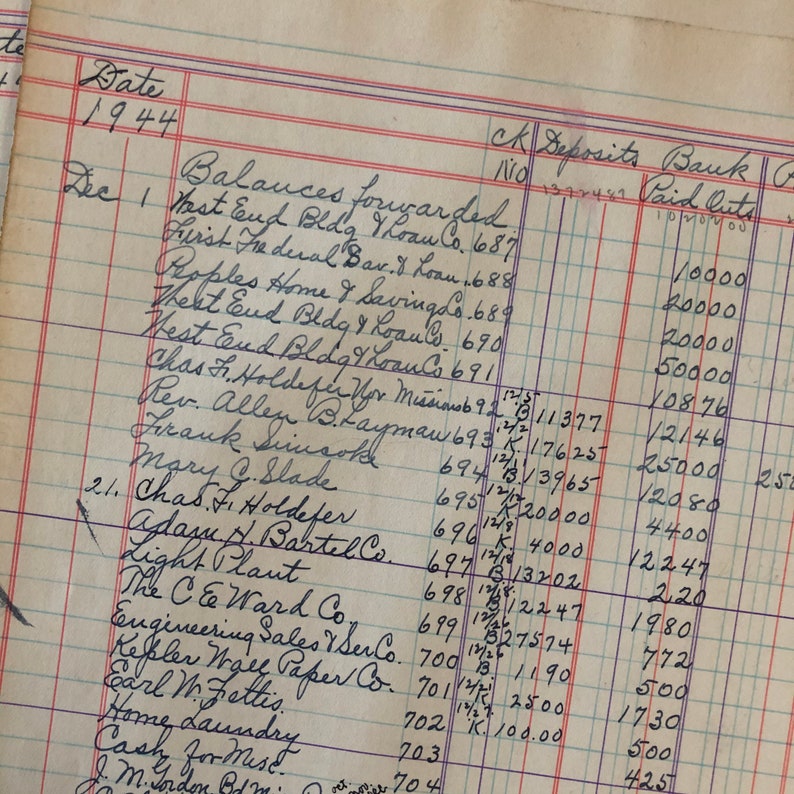 Date
1944
CK Deposits Bank
No 1392487 Paid Outs
1020200
Balances forwarded
Dec 1 West End Bldg & Loan Co. 687 10000
First Federal Sav. & Loan. 688 20000
Peoples Home & Saving Co. 689 20000
West End Bldg & Loan Co. 690 50000
West End Bldg & Loan Co 691 10876
Chas F. Holdefer Nov Missions 692 12/5 B 11377 12146
Rev. Allen B. Layman 693 12/2 K. 17625 25000
Frank 694 12/11 B 13965 12080
Mary C. Slade 695 12/12 K 20000 4400
21. Chas. F. Holdefer 696 12/18 K. 4000 12247
Adam H. Bartel Co. 697 12/18 B 13202 2.20
Light Plant 698 12/18 B 12247 1980
The C E Ward Co. 699 12/26 B 27574 772
Engineering Sales & Ser Co. 700 12/26 B. 1190 500
Kepler Wall Paper Co. 701 12/21 K 2500 1730
Earl W. Fettis. 702 12/27 K. 100.00 500
Home Laundry 703 425
Cash for Misc. 704
J. M. Gordon Bd m: Oct. Nov. Dec